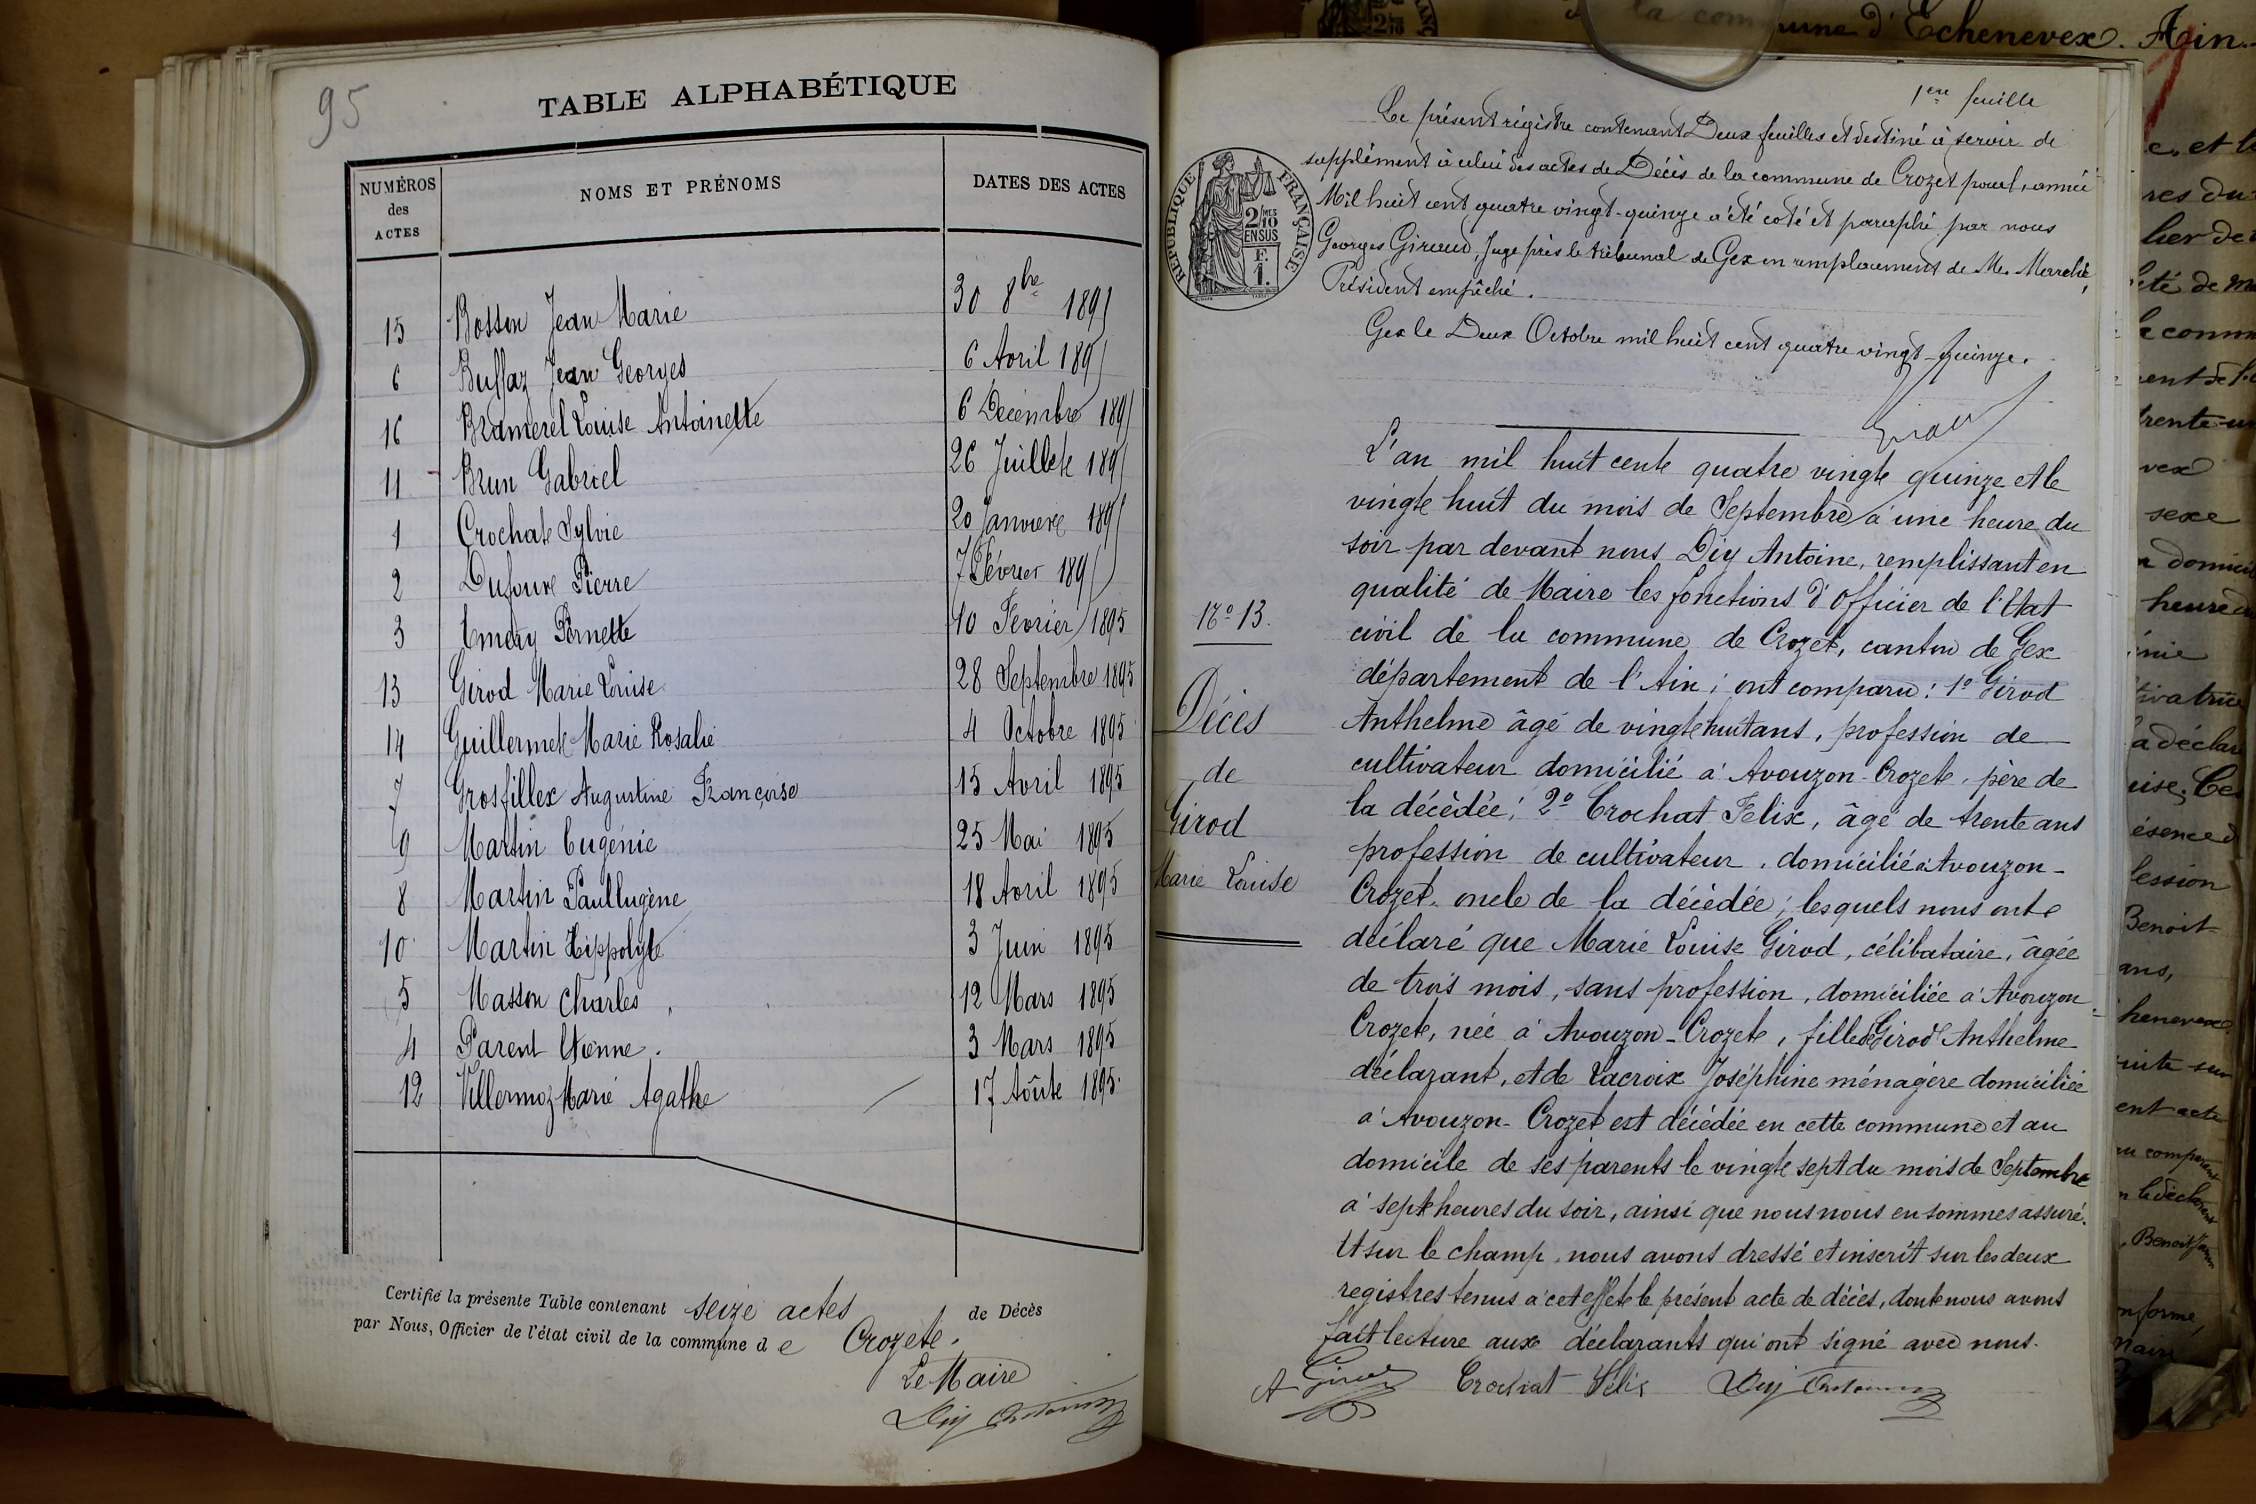 95
TABLE ALPHABÉTIQUE
NUMÉROS des ACTES
NOMS ET PRÉNOMS
DATES DES ACTES
15 Bosson Jean Marie 30 8bre 1895
6 Buffaz Jean Georges 6 Avril 1895
16 Bramerel Louise Antoinette 6 Décembre 1895
11 Brun Gabriel 26 Juillet 1895
1 Crochat Sylvie 20 Janvier 1895
2 Dufour Pierre 7 Février 1895
3 Emery Pernette 10 Février 1895
13 Girod Marie Louise 28 Septembre 1895
14 Guillermet Marie Rosalie 4 Octobre 1895
7 Grosfillex Augustine Françoise 15 Avril 1895
9 Martin Eugénie 25 Mai 1895
8 Martin Paul Eugène 18 Avril 1895
10 Martin Hippolyte 3 Juin 1895
5 Masson Charles 12 Mars 1895
4 Parent Etienne 3 Mars 1895
12 Villermoz Marie Agathe 17 Août 1895
Certifié la présente Table contenant seize actes de Décès
par Nous, Officier de l'état civil de la commune de Crozet.
Le Maire
Diy Antoine
1ere feuille
Le présent régistre contenant Deux feuilles et destiné à servir de
supplément à celui des actes de Décès de la commune de Crozet pour l'année
Mil huit cent quatre vingt-quinze a été coté et paraphé par nous
Georges Giraud, Juge près le tribunal de Gex en remplacement de Mr. Marché,
Président empêché.
Gex le Deux Octobre mil huit cent quatre vingt-quinze.
RÉPUBLIQUE FRANÇAISE
2/10 MES
EN SUS
F.
1.
N° 13.
Décès
de
Girod
Marie Louise
L'an mil huit cent quatre vingt quinze et le
vingt huit du mois de Septembre à une heure du
soir par devant nous Diy Antoine, remplissant en
qualité de Maire les fonctions d'Officier de l'Etat
civil de la commune de Crozet, canton de Gex
département de l'Ain ; ont comparu : 1° Girod
Anthelme âgé de vingt huit ans, profession de
cultivateur domicilié à Avouzon-Crozet, père de
la décèdée ; 2° Crochat Felix, âgé de trente ans
profession de cultivateur, domicilié à Avouzon-
Crozet, oncle de la décèdée ; lesquels nous ont
déclaré que Marie Louise Girod, célibataire, âgée
de trois mois, sans profession, domiciliée à Avouzon-
Crozet, née à Avouzon-Crozet, fille de Girod Anthelme
déclarant, et de Lacroix Joséphine ménagère domiciliée
à Avouzon-Crozet est décédée en cette commune et au
domicile de ses parents le vingt sept du mois de Septembre
à sept heures du soir, ainsi que nous nous en sommes assuré.
Et sur le champ, nous avons dressé et inscrit sur les deux
registres tenus à cet effet le présent acte de décès, dont nous avons
fait lecture aux déclarants qui ont signé avec nous.
A Girod Crochat Félix Diy Antoine
la commune d'Echenevex. Ain.